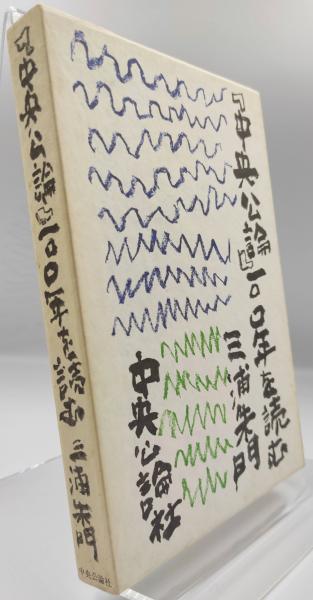 『中央公論』一〇〇年を読む
三浦朱門
中央公論社
『中央公論』一〇〇年を読む
三浦朱門
中央公論社